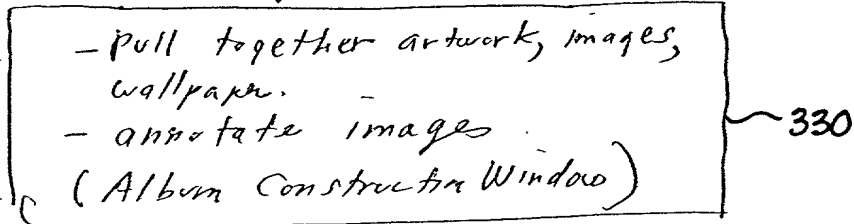 - Pull together artwork, images,
wallpaper.
- annotate images.
(Album Construction Window)
330